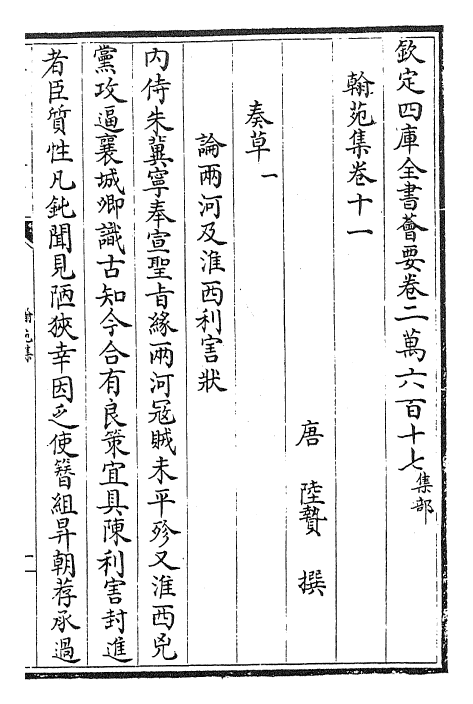 欽定四庫全書薈要卷二萬六百十七集部
翰苑集卷十一
唐 陸贄 撰
奏草一
論兩河及淮西利害狀
内侍朱冀寧奉宣聖旨緣兩河冦賊未平殄又淮西兇
黨攻逼襄城卿識古知今合有良策宜具陳利害封進
者臣質性凡鈍聞見陋狹幸因乏使簪組昇朝荐承過
翰苑集
一